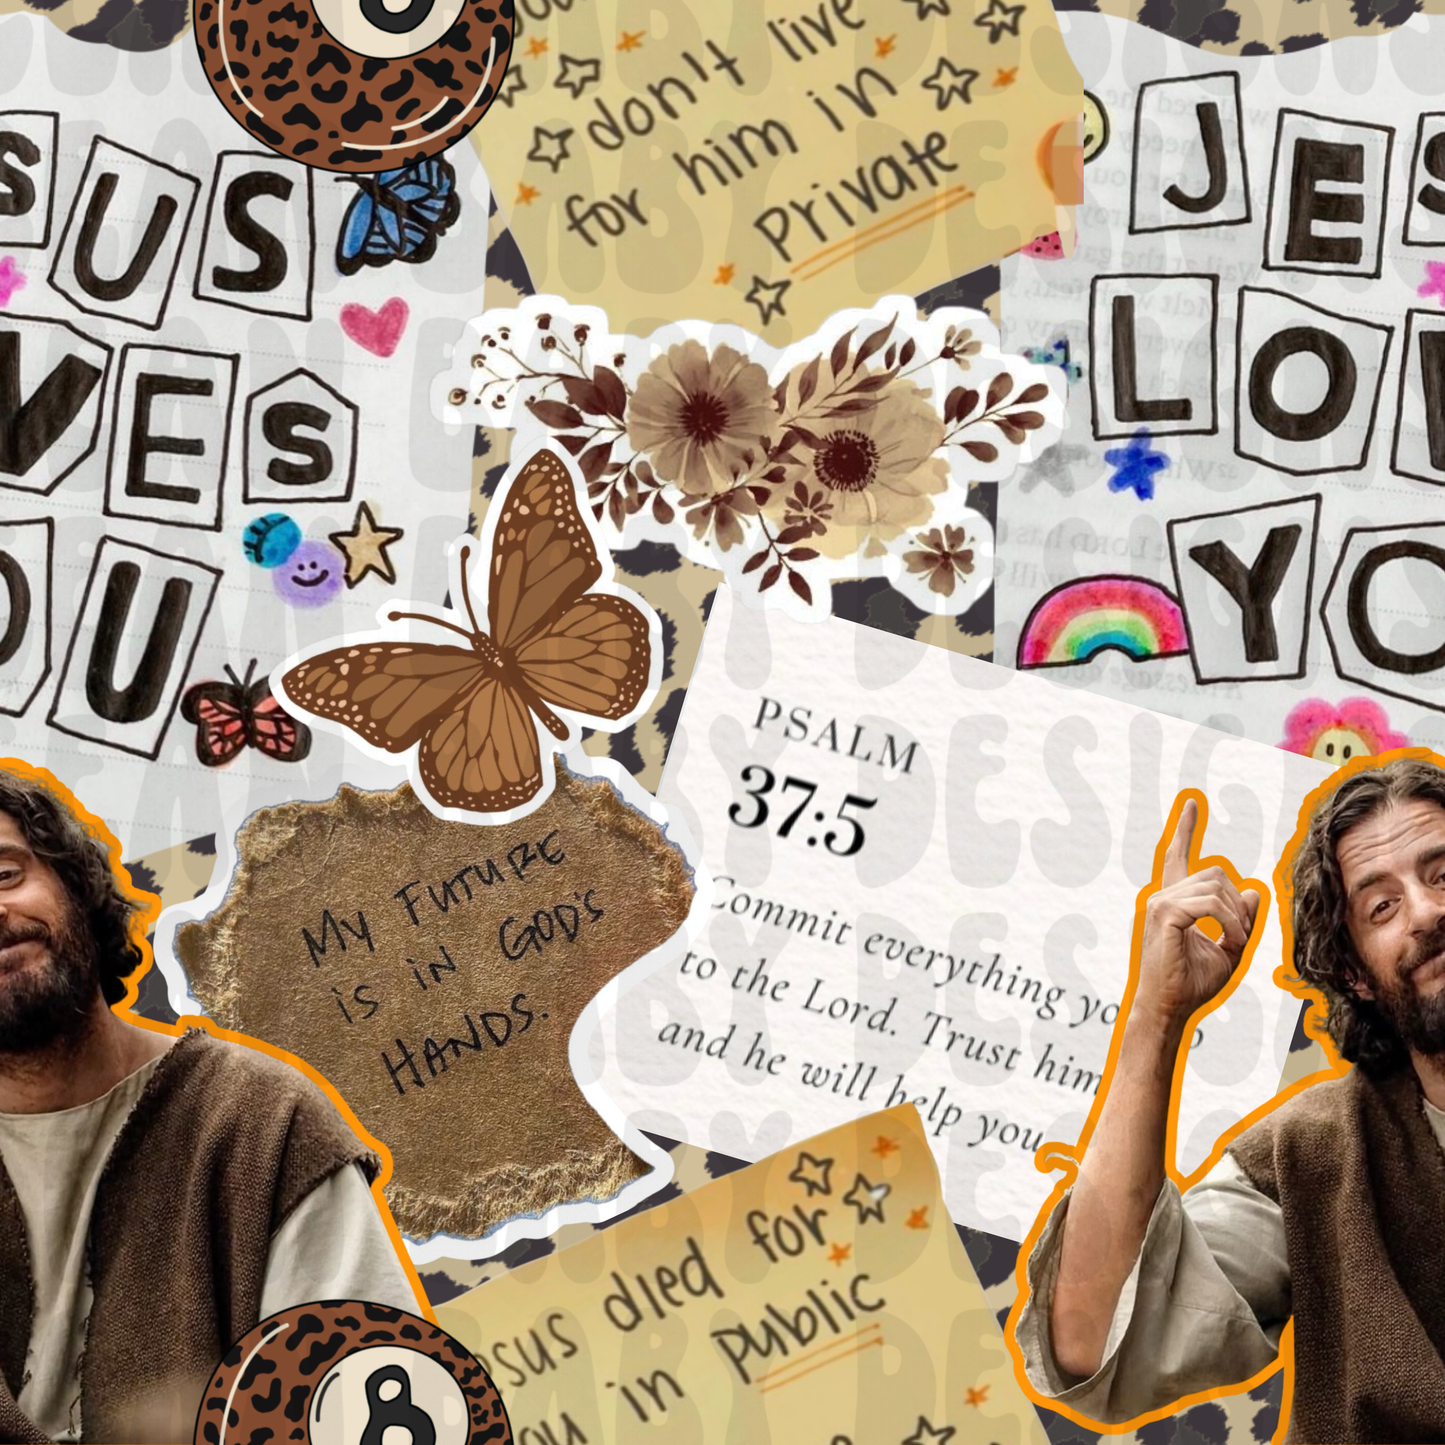 don't live
for him in
Private
SUS
VES
U
JES
LO
YO
PSALM
37:5
Commit everything yo
to the Lord. Trust him
and he will help you
MY FUTURE
is in GOD'S
HANDS.
sus died for
ou in public
8
BEAN BABY DESIGNS